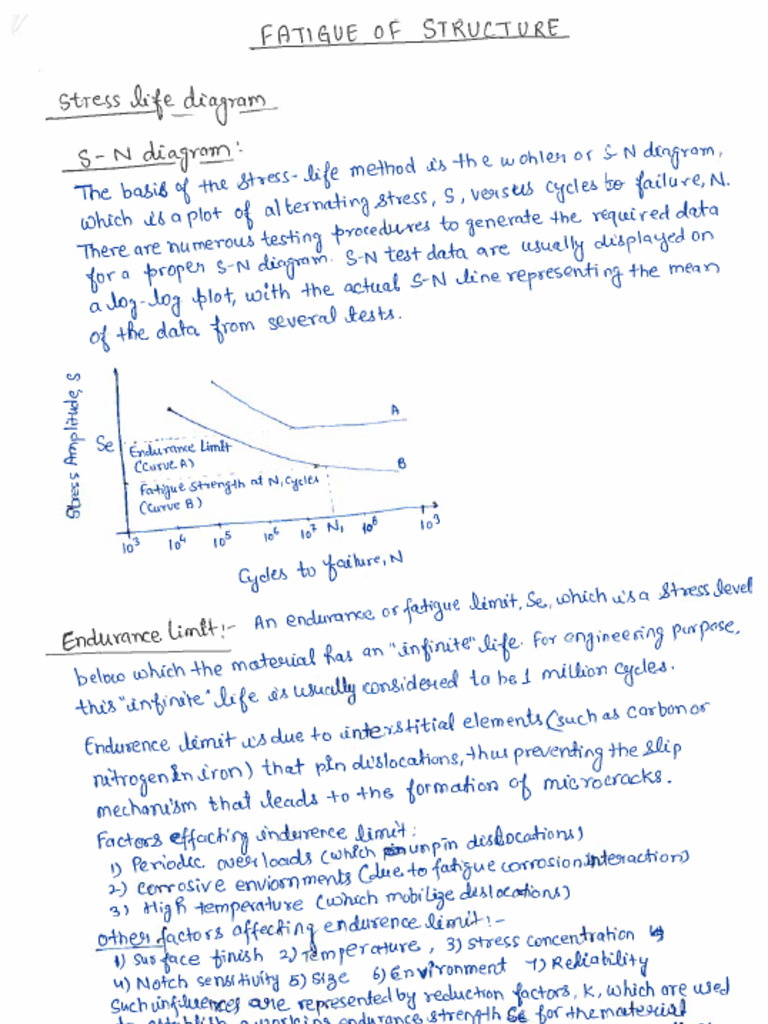 FATIGUE OF STRUCTURE
Stress life diagram
S-N diagram:
The basis of the stress-life method is the wohler or S-N diagram,
which is a plot of alternating stress, S, versus cycles to failure, N.
There are numerous testing procedures to generate the required data
for a proper S-N diagram. S-N test data are usually displayed on
a log-log plot, with the actual S-N line representing the mean
of the data from several tests.
Stress Amplitude, S
A
Se
Endurance Limit
(Curve A)
B
Fatigue Strength at N, Cycles
(Curve B)
10³ 10⁴ 10⁵ 10⁶ 10⁷ N₁ 10⁸ 10³
Cycles to failure, N
Endurance Limit:- An endurance or fatigue limit, Se, which is a stress level
below which the material has an "infinite" life. For engineering purpose,
this "infinite" life is usually considered to be 1 million cycles.
Endurence limit is due to interstitial elements (such as carbon or
nitrogen in iron) that pin dislocations, thus preventing the slip
mechanism that leads to the formation of microcracks.
Factors effacting indurence limit:
1) Periodic overloads (which unpin dislocations)
2) corrosive enviornments (due to fatigue corrosion interaction)
3) High temperature (which mobilize dislocations)
other factors affecting endurence limit:-
1) Surface finish 2) Temperature, 3) stress concentration
4) Notch sensitivity 5) Size 6) Environment 7) Reliability
Such influences are represented by reduction factors, K, which are used
endurance strength Se for the material